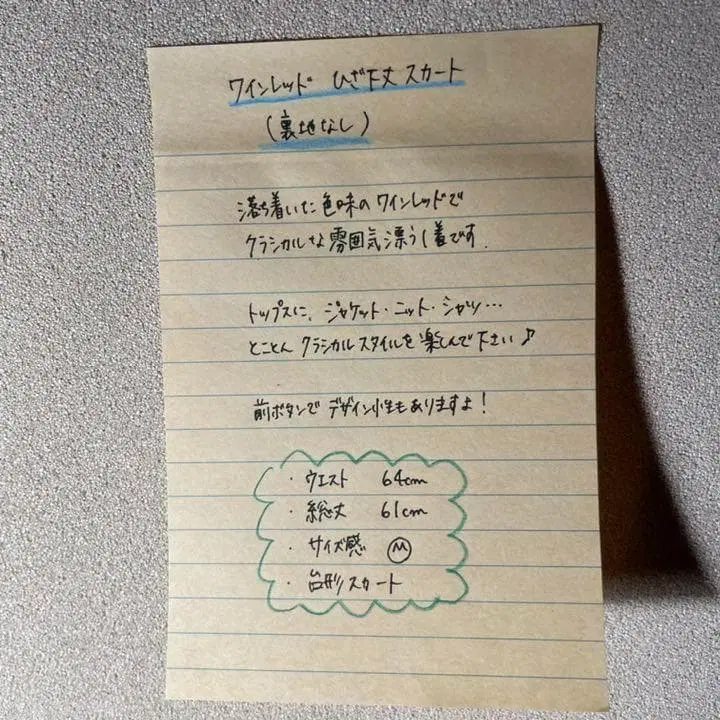 ワインレッド ひざ下丈スカート
(裏地なし)
落ち着いた色味のワインレッドで
クラシカルな雰囲気漂う1着です.
トップスに、ジャケット・ニット・シャツ…
とことん クラシカルスタイルを楽しんで下さい♪
前ボタンで デザイン性もありますよ!
・ウエスト 64cm
・総丈 61cm
・サイズ感 Ⓜ
・台形スカート